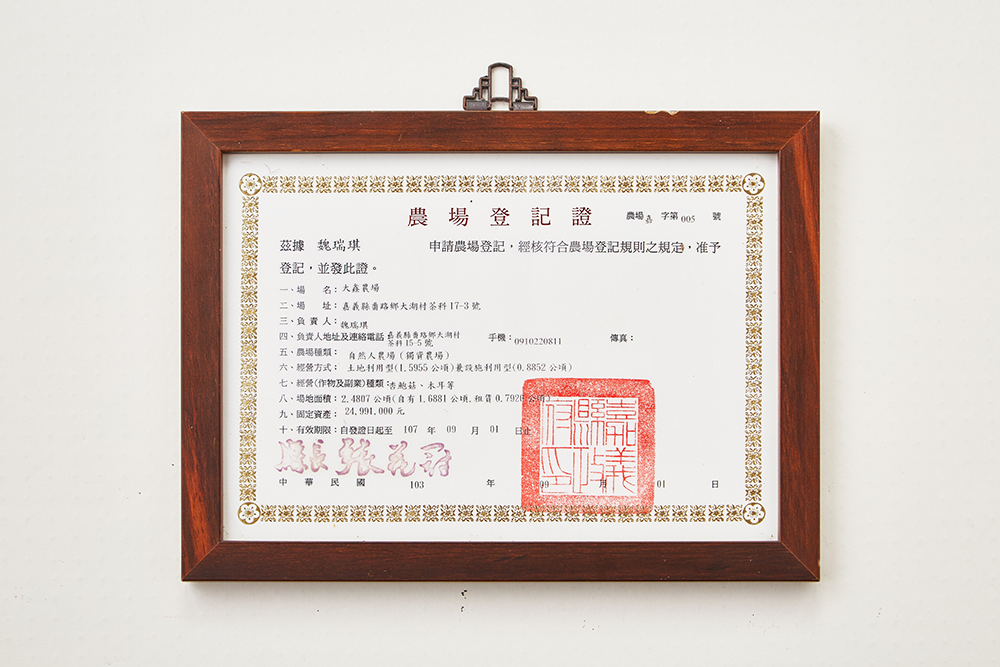 農場登記證 農場嘉字第005號
茲據 魏瑞琪 申請農場登記，經核符合農場登記規則之規定，准予
登記，並發此證。
一、場 名：大鑫農場
二、場 址：嘉義縣番路鄉大湖村茶科17-3號
三、負責人：魏瑞琪
四、負責人地址及連絡電話 嘉義縣番路鄉大湖村茶科15-5號 手機：0910220811 傳真：
五、農場種類：自然人農場(獨資農場)
六、經營方式：土地利用型(1.5955公頃)兼設施利用型(0.8852公頃)
七、經營(作物及副業)種類：杏鮑菇、木耳等
八、場地面積：2.4807公頃(自有1.6881公頃.租賃0.7926公頃)
九、固定資產：24,991,000元
十、有效期限：自發證日起至 107 年 09 月 01 日止
縣長 張花冠
中華民國 103 年 09 月 01 日
嘉義縣政府印